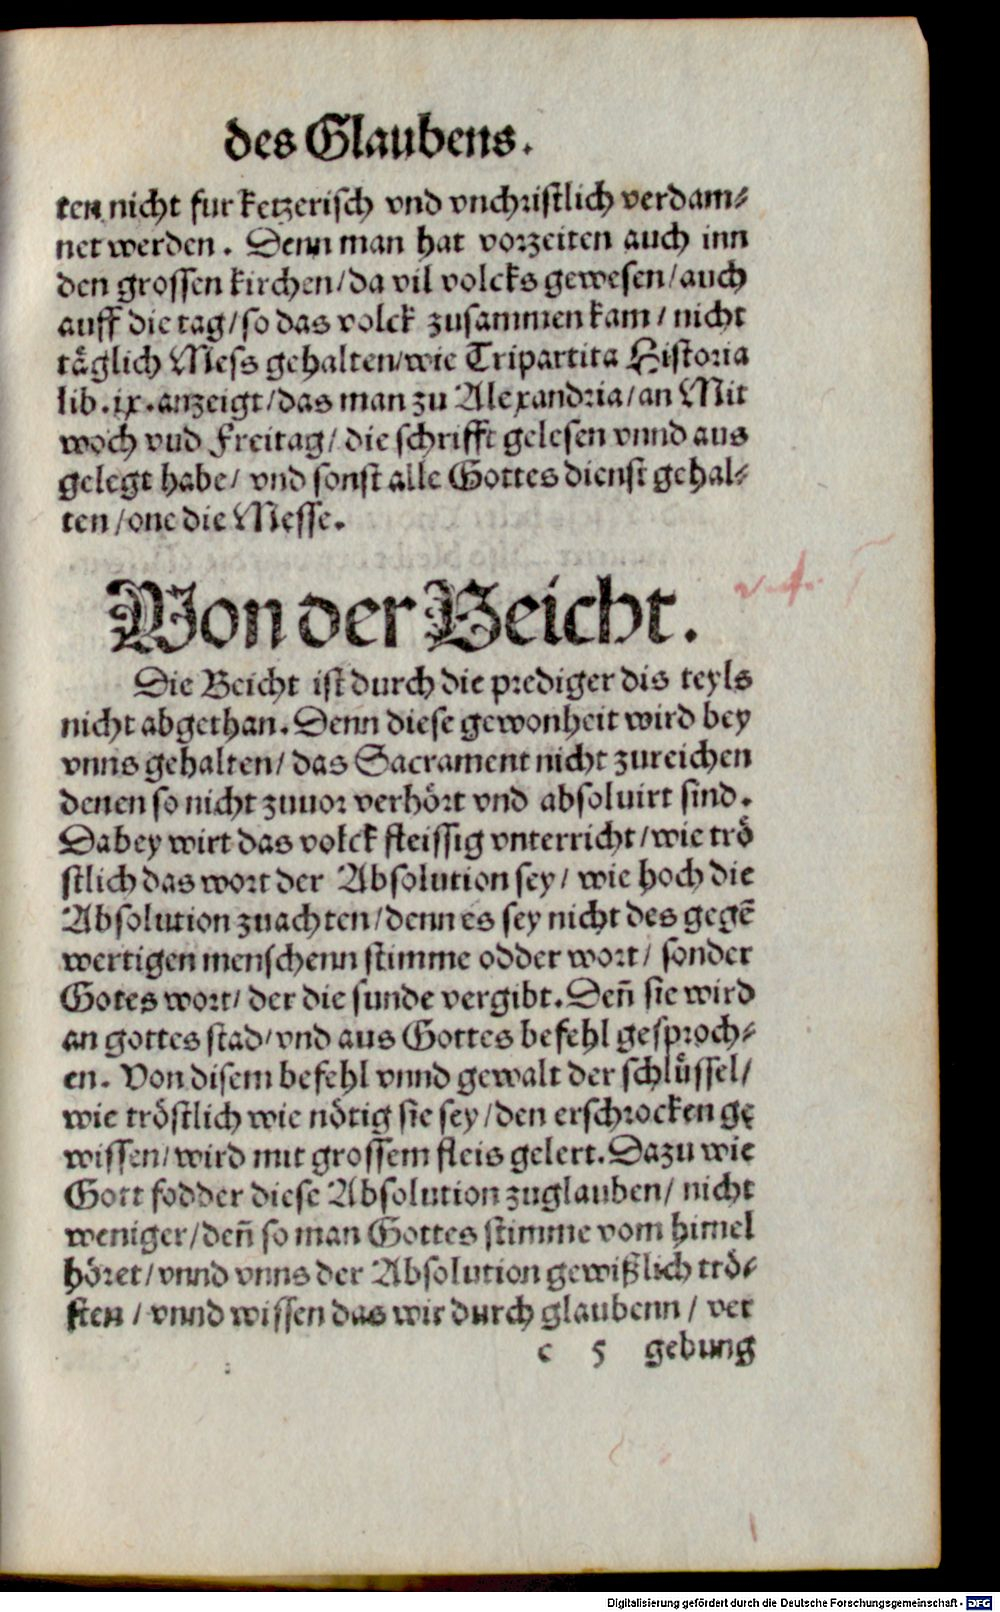 des Glaubens.
ten nicht fur ketzerisch vnd vnchristlich verdam⸗
net werden. Denn man hat vorzeiten auch inn
den grossen kirchen/da vil volcks gewesen/auch
auff die tag/so das volck zusammen kam/nicht
täglich Mess gehalten/wie Tripartita Historia
lib.ix.anzeigt/das man zu Alexandria/an Mit
woch vud Freitag/die schrifft gelesen vnnd aus
gelegt habe/ vnd sonst alle Gottes dienst gehal⸗
ten/one die Messe.
Von der Beicht.
Die Beicht ist durch die prediger dis teyls
nicht abgethan. Denn diese gewonheit wird bey
vnns gehalten/ das Sacrament nicht zureichen
denen so nicht zuuor verhört vnd absoluirt sind.
Dabey wirt das volck fleissig vnterricht/wie trö
stlich das wort der Absolution sey/ wie hoch die
Absolution zuachten/denn es sey nicht des gegẽ
wertigen menschenn stimme odder wort/ sonder
Gotes wort/ der die sunde vergibt. Deñ sie wird
an gottes stad/vnd aus Gottes befehl gesproch⸗
en. Von disem befehl vnnd gewalt der schlüssel/
wie tröstlich wie nötig sie sey/den erschrocken ge
wissen/wird mit grossem fleis gelert. Dazu wie
Gott fodder diese Absolution zuglauben/ nicht
weniger/deñ so man Gottes stimme vom himel
höret/vnnd vnns der Absolution gewißlich trö⸗
sten/vnnd wissen das wir durch glaubenn/ ver
c 5 gebung
Digitalisierung gefördert durch die Deutsche Forschungsgemeinschaft - DFG